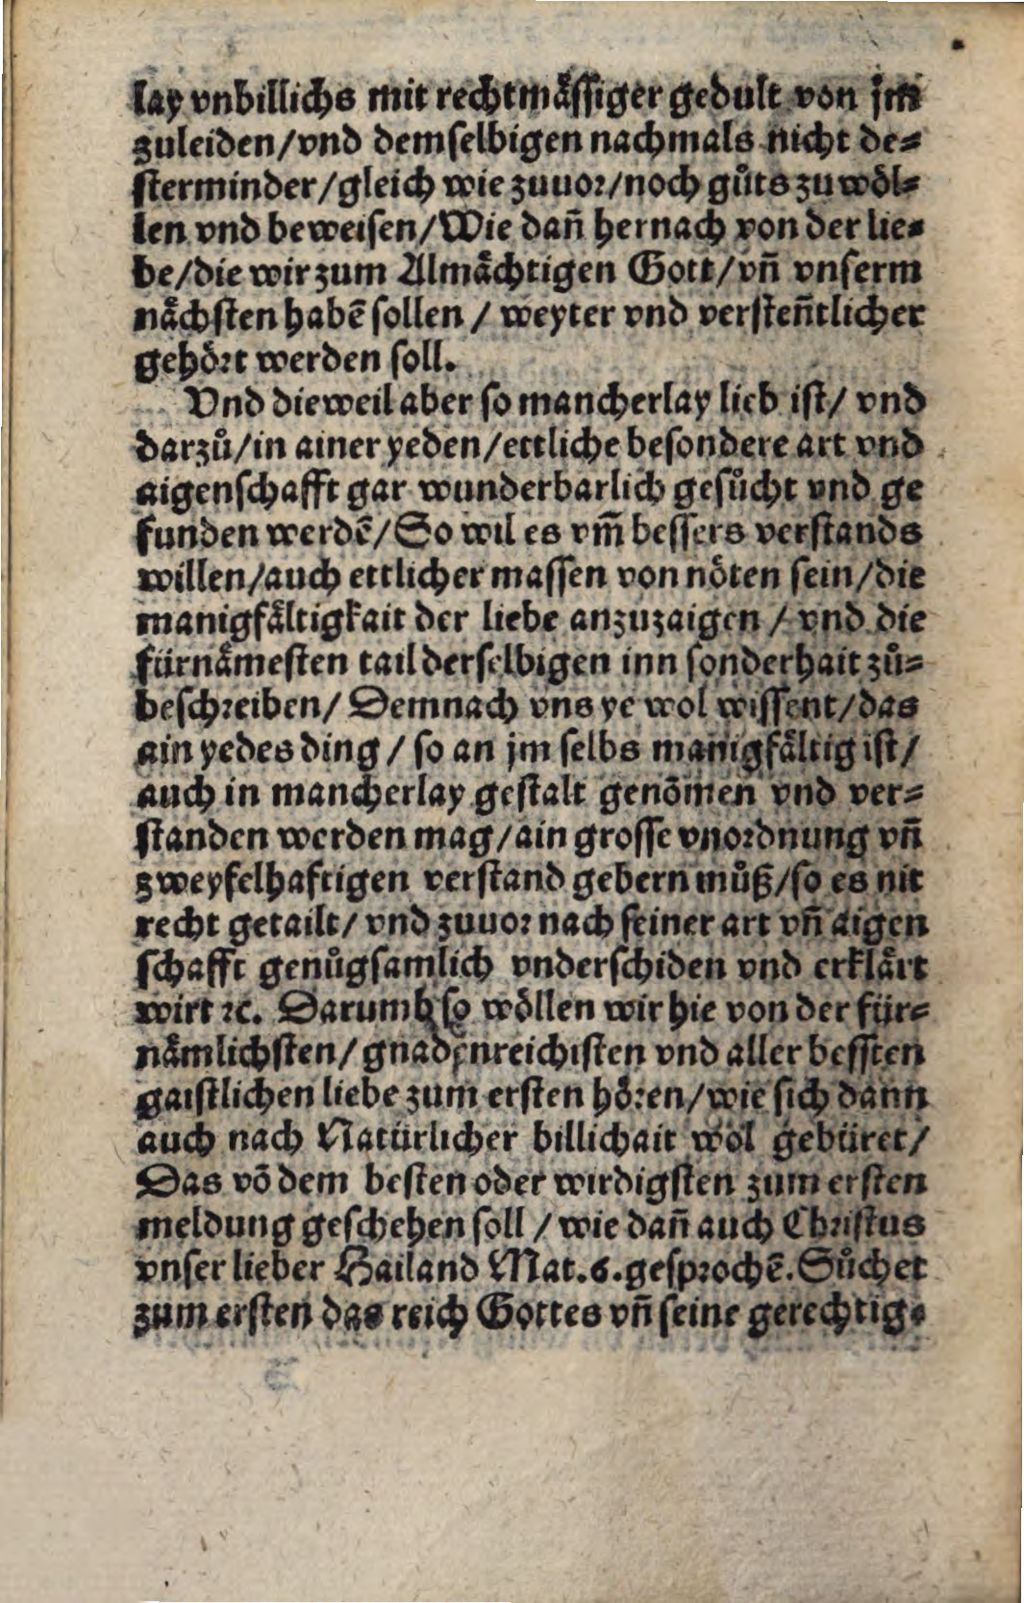 lay vnbillichs mit rechtmåssiger gedult von jm
zuleiden/vnd demselbigen nachmals nicht de⸗
sterminder/gleich wie zuuor/noch gůts zu wöl⸗
len vnd beweisen/Wie dañ hernach von der lie⸗
be/die wir zum Almåchtigen Gott/vñ vnserm
nåchsten habẽ sollen / weyter vnd versteñtlicher
gehört werden soll.
Vnd dieweil aber so mancherlay lieb ist/ vnd
darzů/in ainer yeden/ettliche besondere art vnd
aigenschafft gar wunderbarlich gesůcht vnd ge
funden werdẽ/So wil es vm̃ bessers verstands
willen/auch ettlicher massen von nöten sein/die
manigfåltigkait der liebe anzuzaigen / vnd die
fürnåmesten tail derselbigen inn sonderhait zů⸗
beschreiben/ Demnach vns ye wol wissent/das
ain yedes ding / so an jm selbs manigfåltig ist/
auch in mancherlay gestalt genõmen vnd ver⸗
standen werden mag/ain grosse vnordnung vñ
zweyfelhafftigen verstand gebern můß/so es nit
recht getailt/ vnd zuuor nach seiner art vñ aigen
schafft genůgsamlich vnderschiden vnd erklårt
wirt ꝛc. Darumb so wöllen wir hie von der für⸗
nåmlichsten/ gnadenreichisten vnd aller bessten
gaistlichen liebe zum ersten hören/wie sich dann
auch nach Natürlicher billichait wol gebüret/
Das võ dem besten oder wirdigsten zum ersten
meldung geschehen soll / wie dañ auch Christus
vnser lieber Hailand Mat.6.gesprochẽ.Sůchet
zum ersten das reich Gottes vñ seine gerechtig⸗